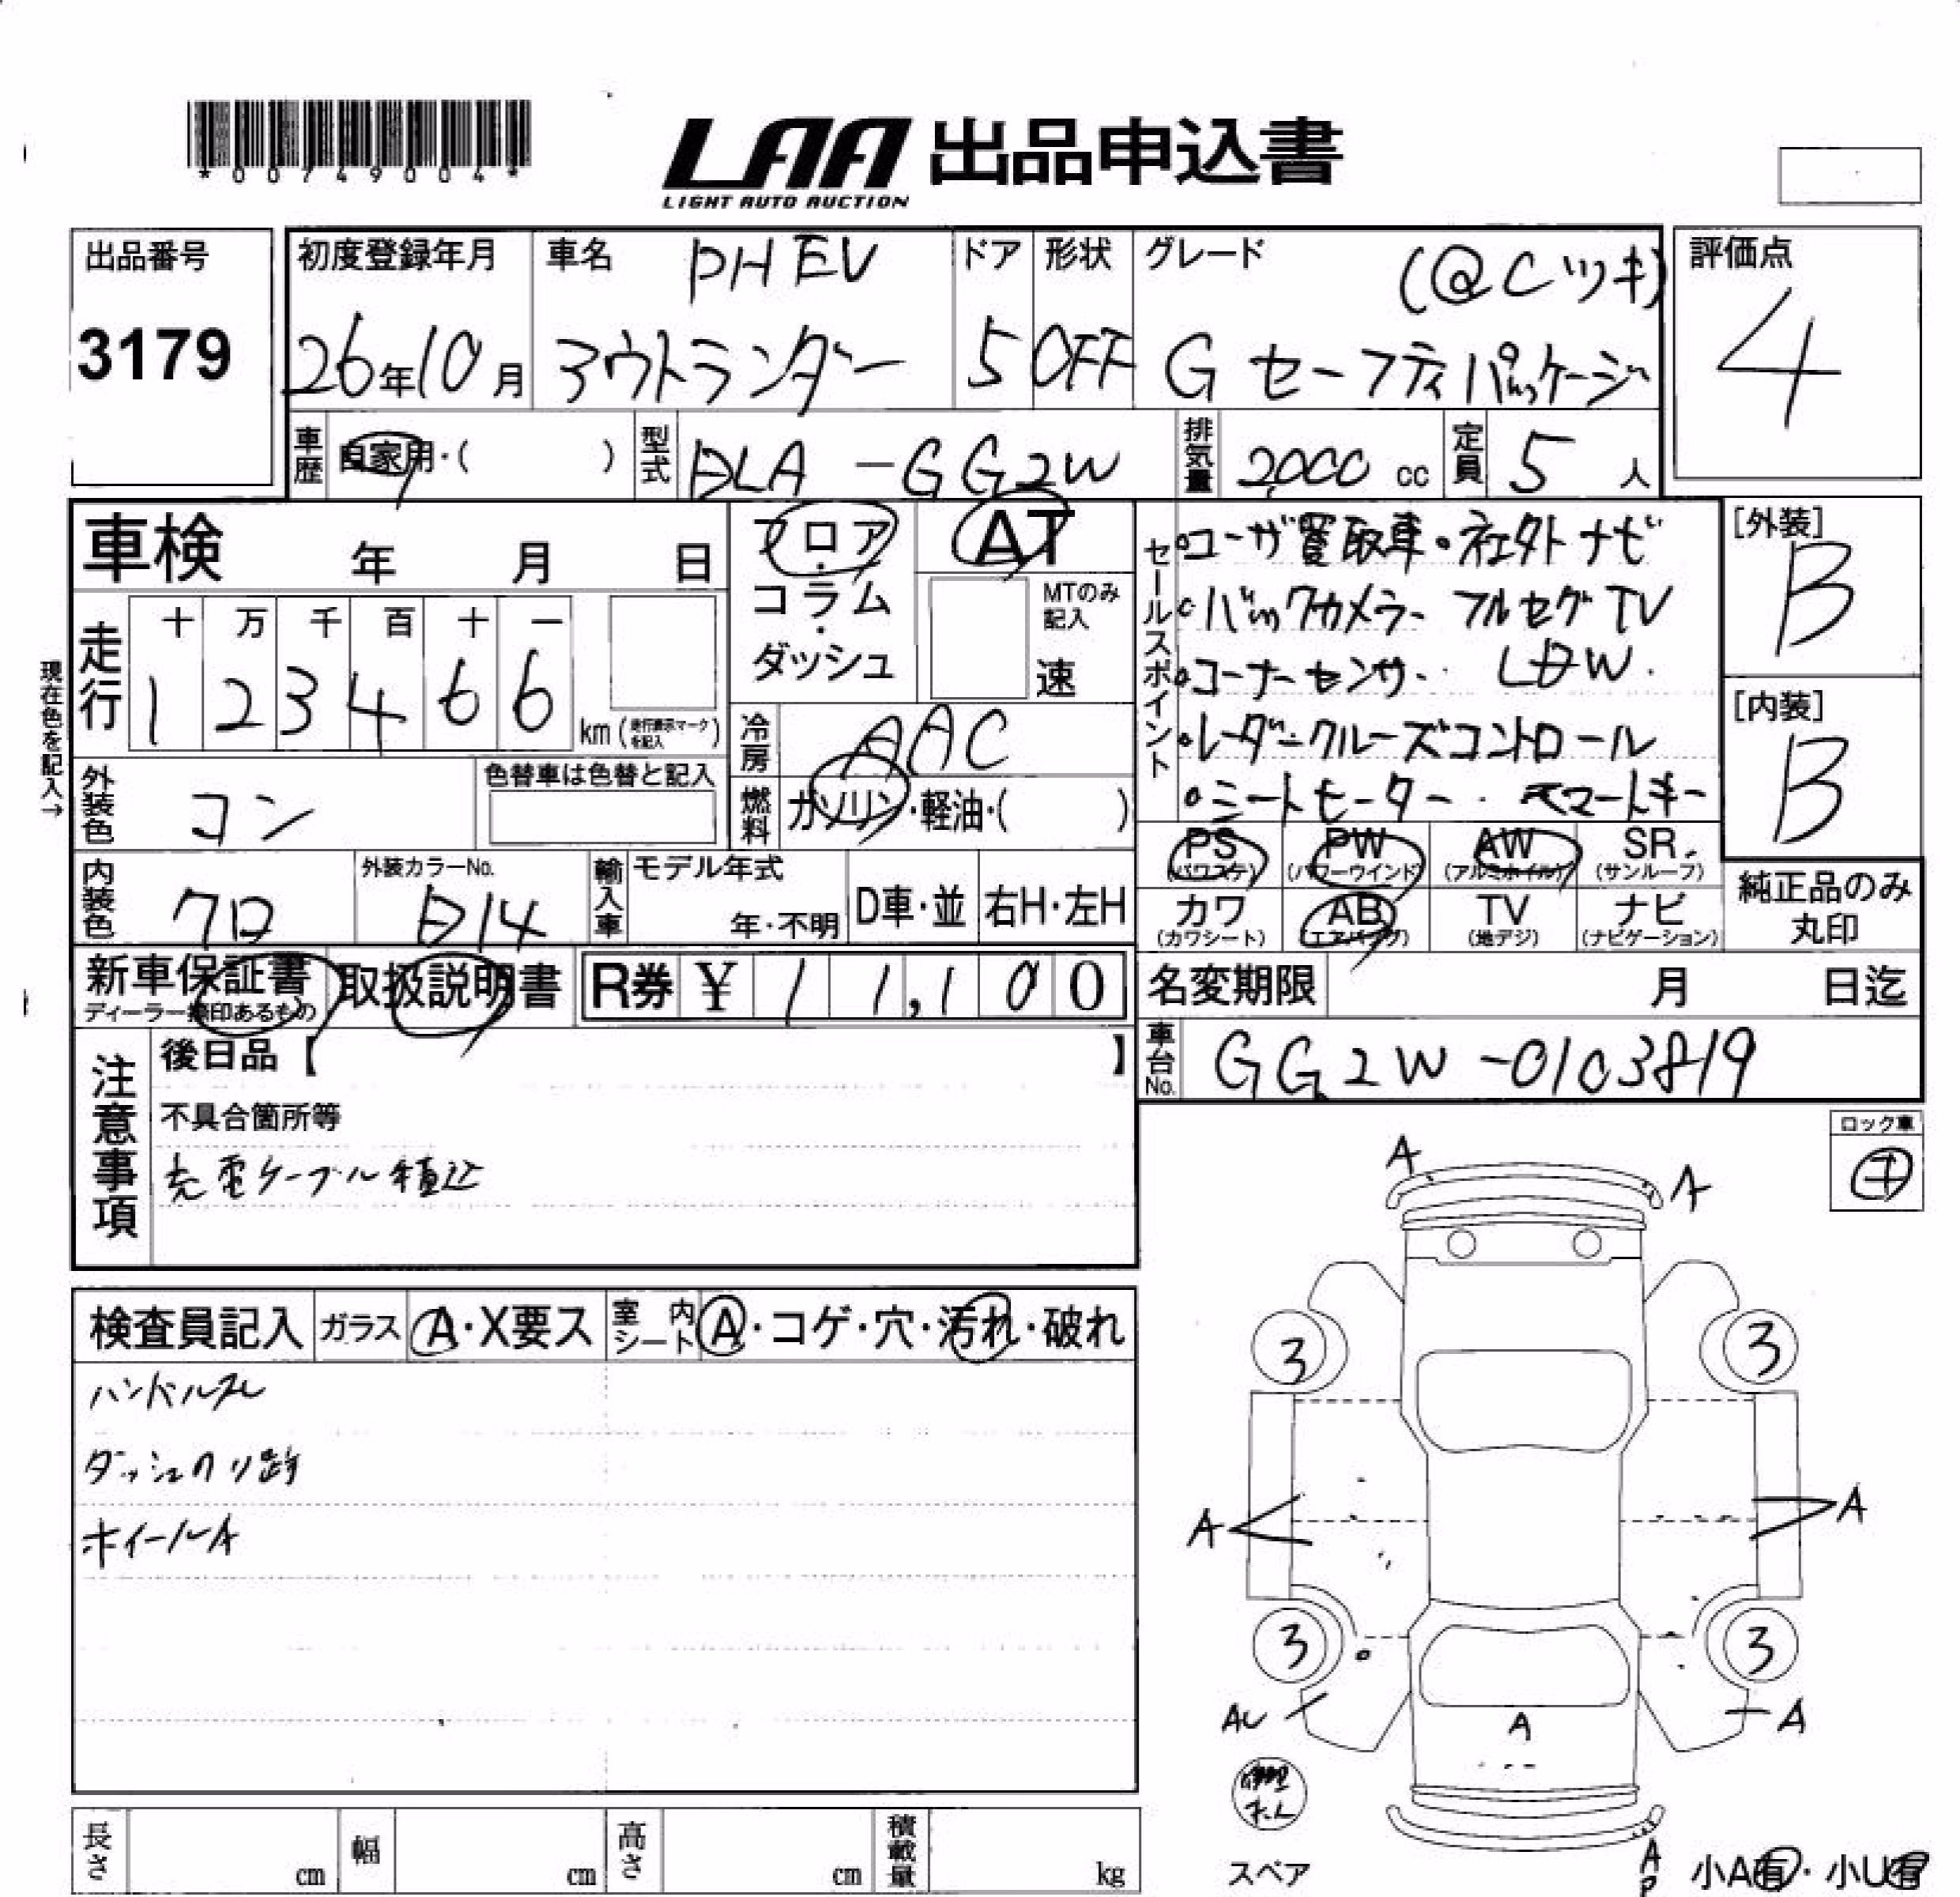 *00749004*
LAA 出品申込書
LIGHT AUTO AUCTION
出品番号
3179
初度登録年月
26年10月
車名
PHEV
アウトランダー
ドア
5
形状
OFF
グレード
(@Cツキ)
G セーフティパッケージ
評価点
4
車歴
自家用・( )
型式
DLA-GG2W
排気量
2,000 cc
定員
5 人
車検 年 月 日
フロア・コラム・ダッシュ
AT
MTのみ記入
速
セールスポイント
・ユーザ買取車・社外ナビ
・バックカメラ フルセグTV
・コーナーセンサ・ LDW・
・レーダークルーズコントロール
・シートヒーター・スマートキー
[外装]
B
[内装]
B
現在色を記入→
走行
十 万 千 百 十 一
1 2 3 4 6 6
km(走行表示マークを記入)
冷房
AAC
外装色
コン
色替車は色替と記入
燃料
ガソリン・軽油・( )
PS (パワステ)
PW (パワーウインド)
AW (アルミホイル)
SR (サンルーフ)
カワ (カワシート)
AB (エアバッグ)
TV (地デジ)
ナビ (ナビゲーション)
純正品のみ丸印
内装色
クロ
外装カラーNo.
D14
輸入車
モデル年式
年・不明
D車・並
右H・左H
新車保証書
ディーラー捺印あるもの
取扱説明書
R券 ¥ 11,100
名変期限 月 日迄
車台No.
GG2W-0103819
注意事項
後日品【 】
不具合箇所等
充電ケーブル積込
ロック車
検査員記入
ガラス
A・X要ス
室内シート
A・コゲ・穴・汚れ・破れ
ハンドルスレ
ダッシュノリ跡
ホイールA
A
A
3
3
A
A
3
3
AU
A
A
修理キット
スペア
A
P
小A有・小U有
長さ cm
幅 cm
高さ cm
積載量 kg